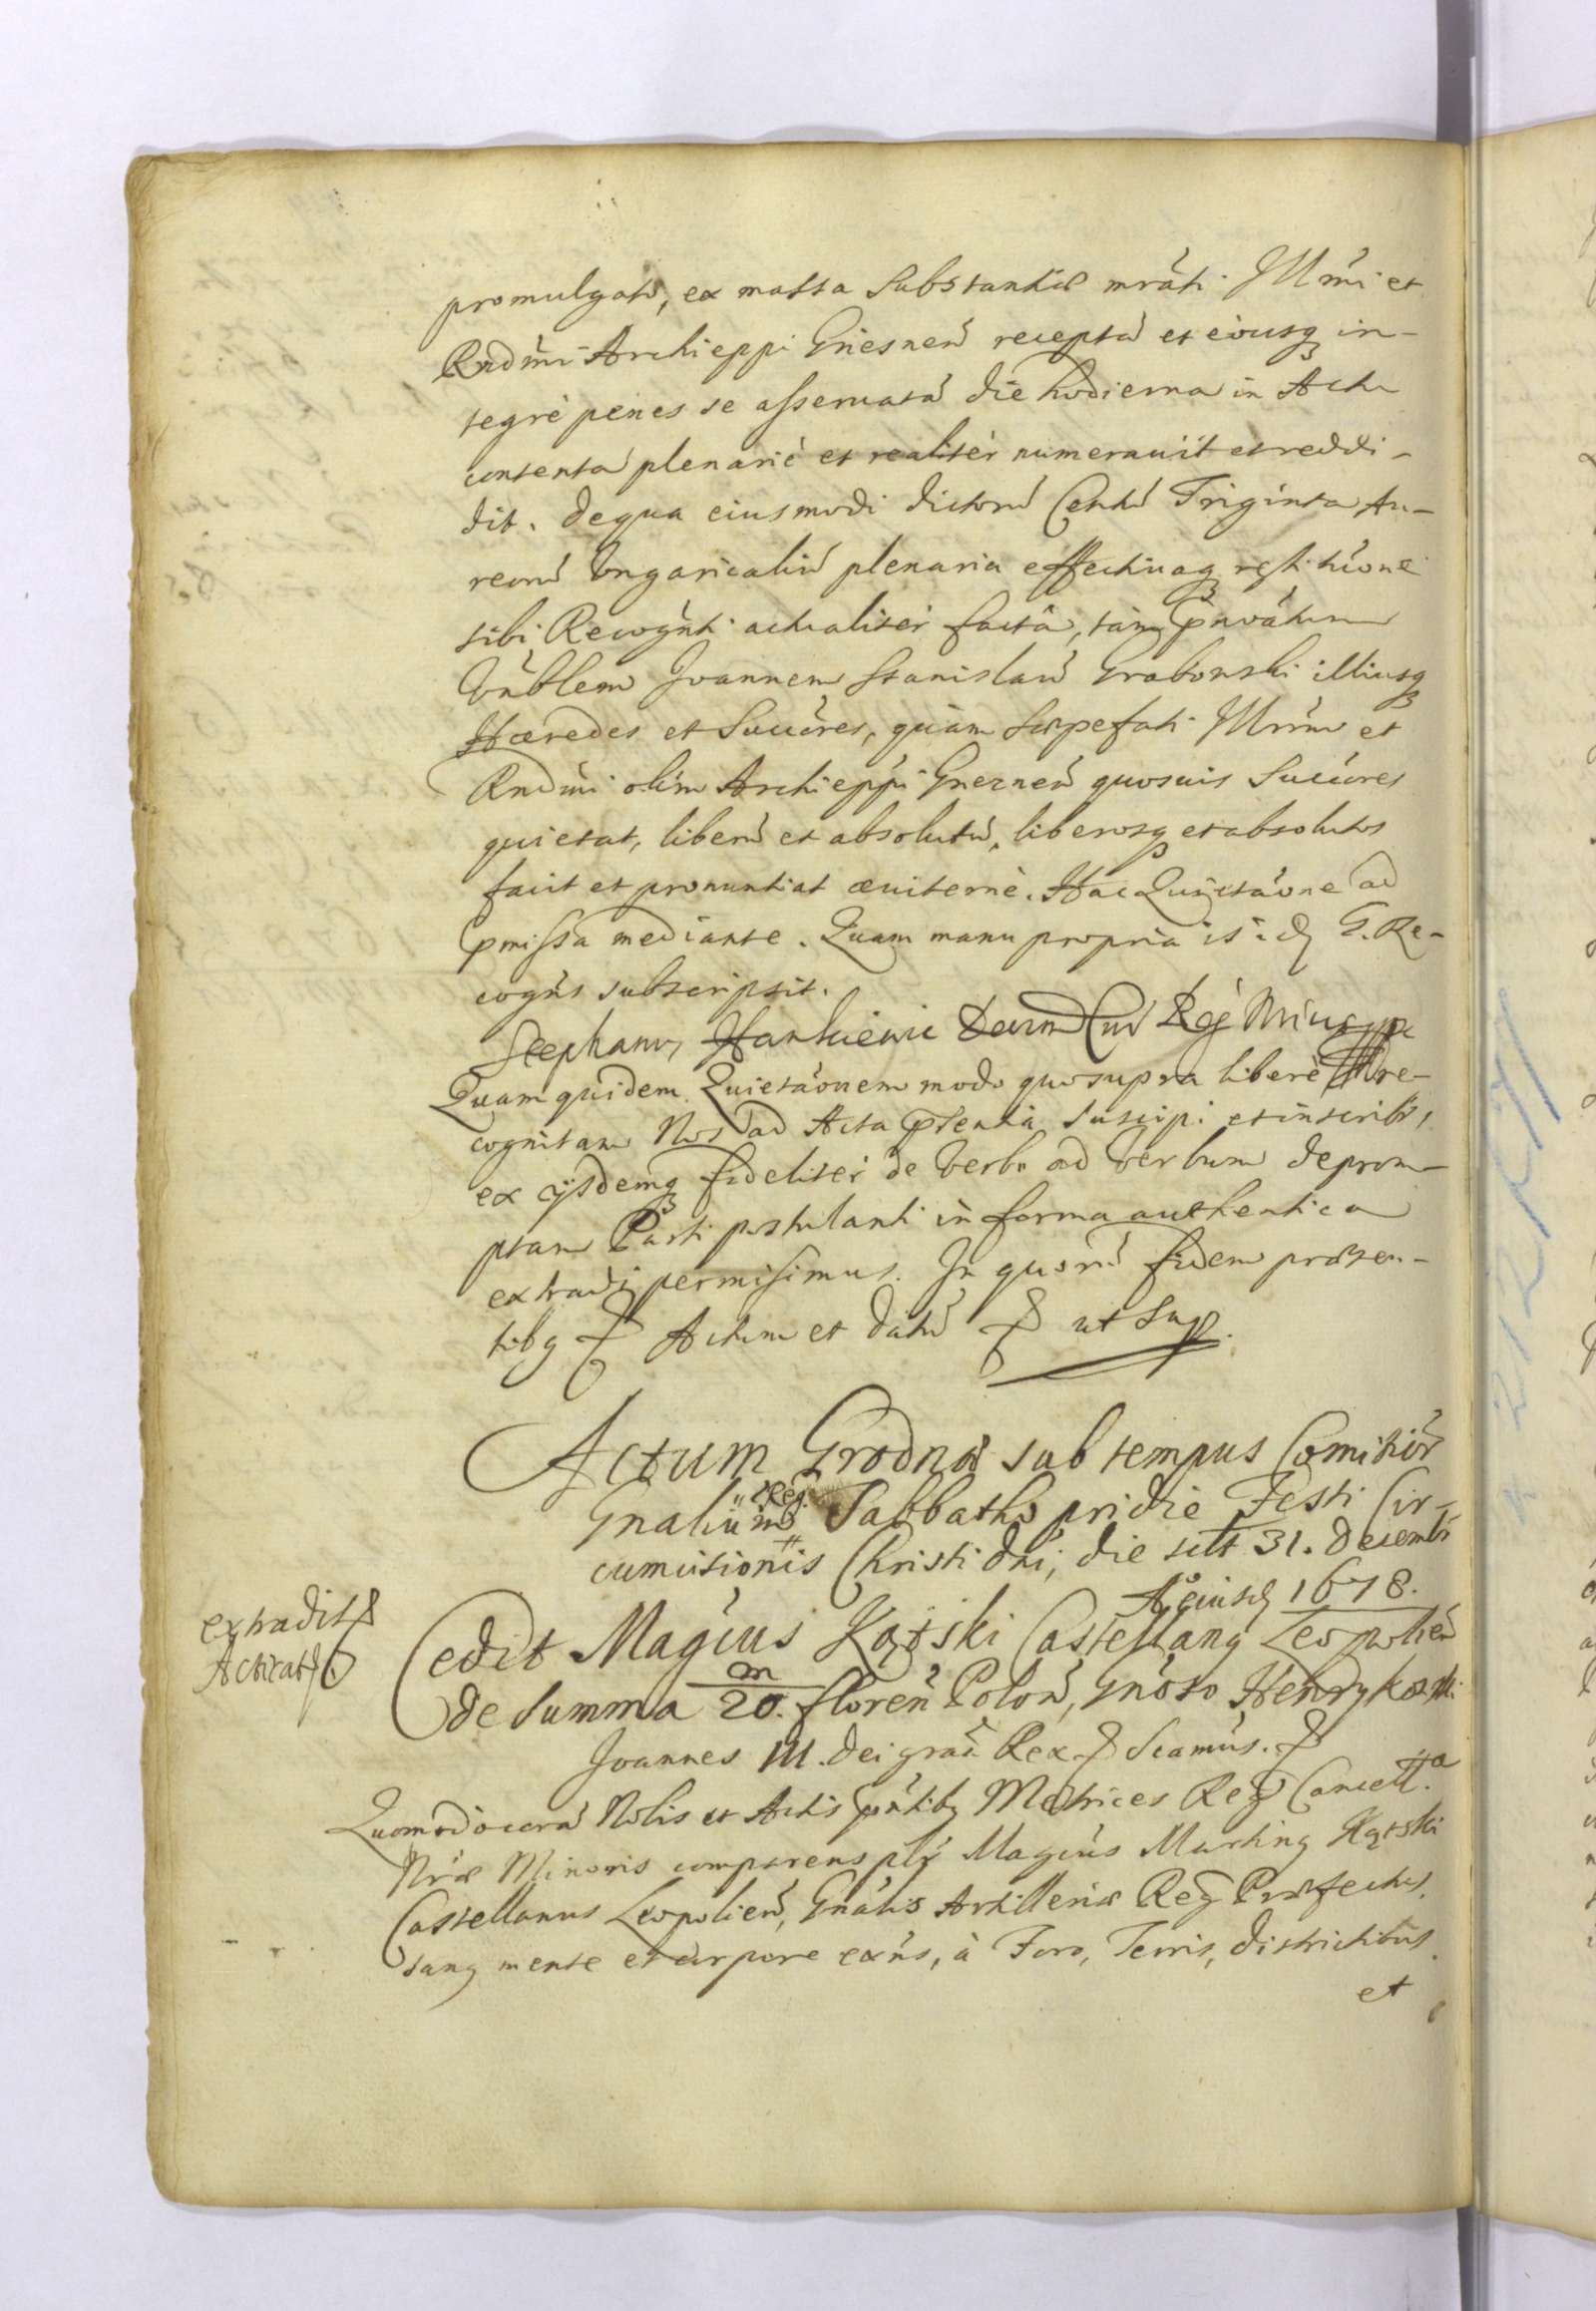 promulgato, ex massa Substantiæ mrãti Illmi et
Rndmi Archieppi Gnesneñ receptã et eousq in-
tegrè penes se asseruatã die hodierna in Actu
contentã plenariè et realitèr numerauit et reddi-
dit. De qua eiusmodi dictorũ Centũ Triginta Au-
reorũ Vngaricaliũ plenaria effectiuaq restitũone
sibi Recogñti actualitèr factâ, tàm pñoãtum
Gñblem Joannem Stanislaũ Grabowski illiusq
Hæredes et Succ̃res, quàm Sæpefati Illrm̃ et
Rndmi olim Archieppi Gnezneñ quosuis Succ̃ores
quietat, liberũ et absolutũ, liberosq et absolutos
facit et pronuntiat æuiternè. Hac Quietãone ad
pmissa mediante. Quam manu propria is: d G. Re-
cogñs subscripsit.
Stephanus Hankiewic Decret Cur Reg Notarius mp
Quam quidem Quietãonem modo quo supra liberè re-
cognitam Nos ad Acta pñtia Suscipi et inscribi,
ex ijsdemq fidelitèr de Verbo ad Verbum deprom-
ptam Parti postulanti in forma authentica
extradi permisimus. In quorũ fidem præsen-
tibq & Actum et datũ & ut Sup.
Actum Grodnæ sub tempus Comitior
Gnaliũm Reg. Sabbatho pridie Festi Cir-
cumcisionis Christi Dñi, die sctt 31. Decembr
A° eiusd 1678.
extradit
Acticat
Cedit Magcus Kątski Castellanq Leopolieñ
de Summa 20. m floreñ Poloñ, Gnõso Henrykowski
Joannes III. Dei graã Rex & Scamus. &
Quomodo corã Nobis et Actis pñtibq Metrices Reg Cancell.a
Nræ Minoris comparens plr Magcus Martinq Kątski
Castellanus Leopolieñ, Gnãlis Artilleriæ Reg Præfectus.
sanq mente et corpore exñs, à Foro, Terris, districtibus
et